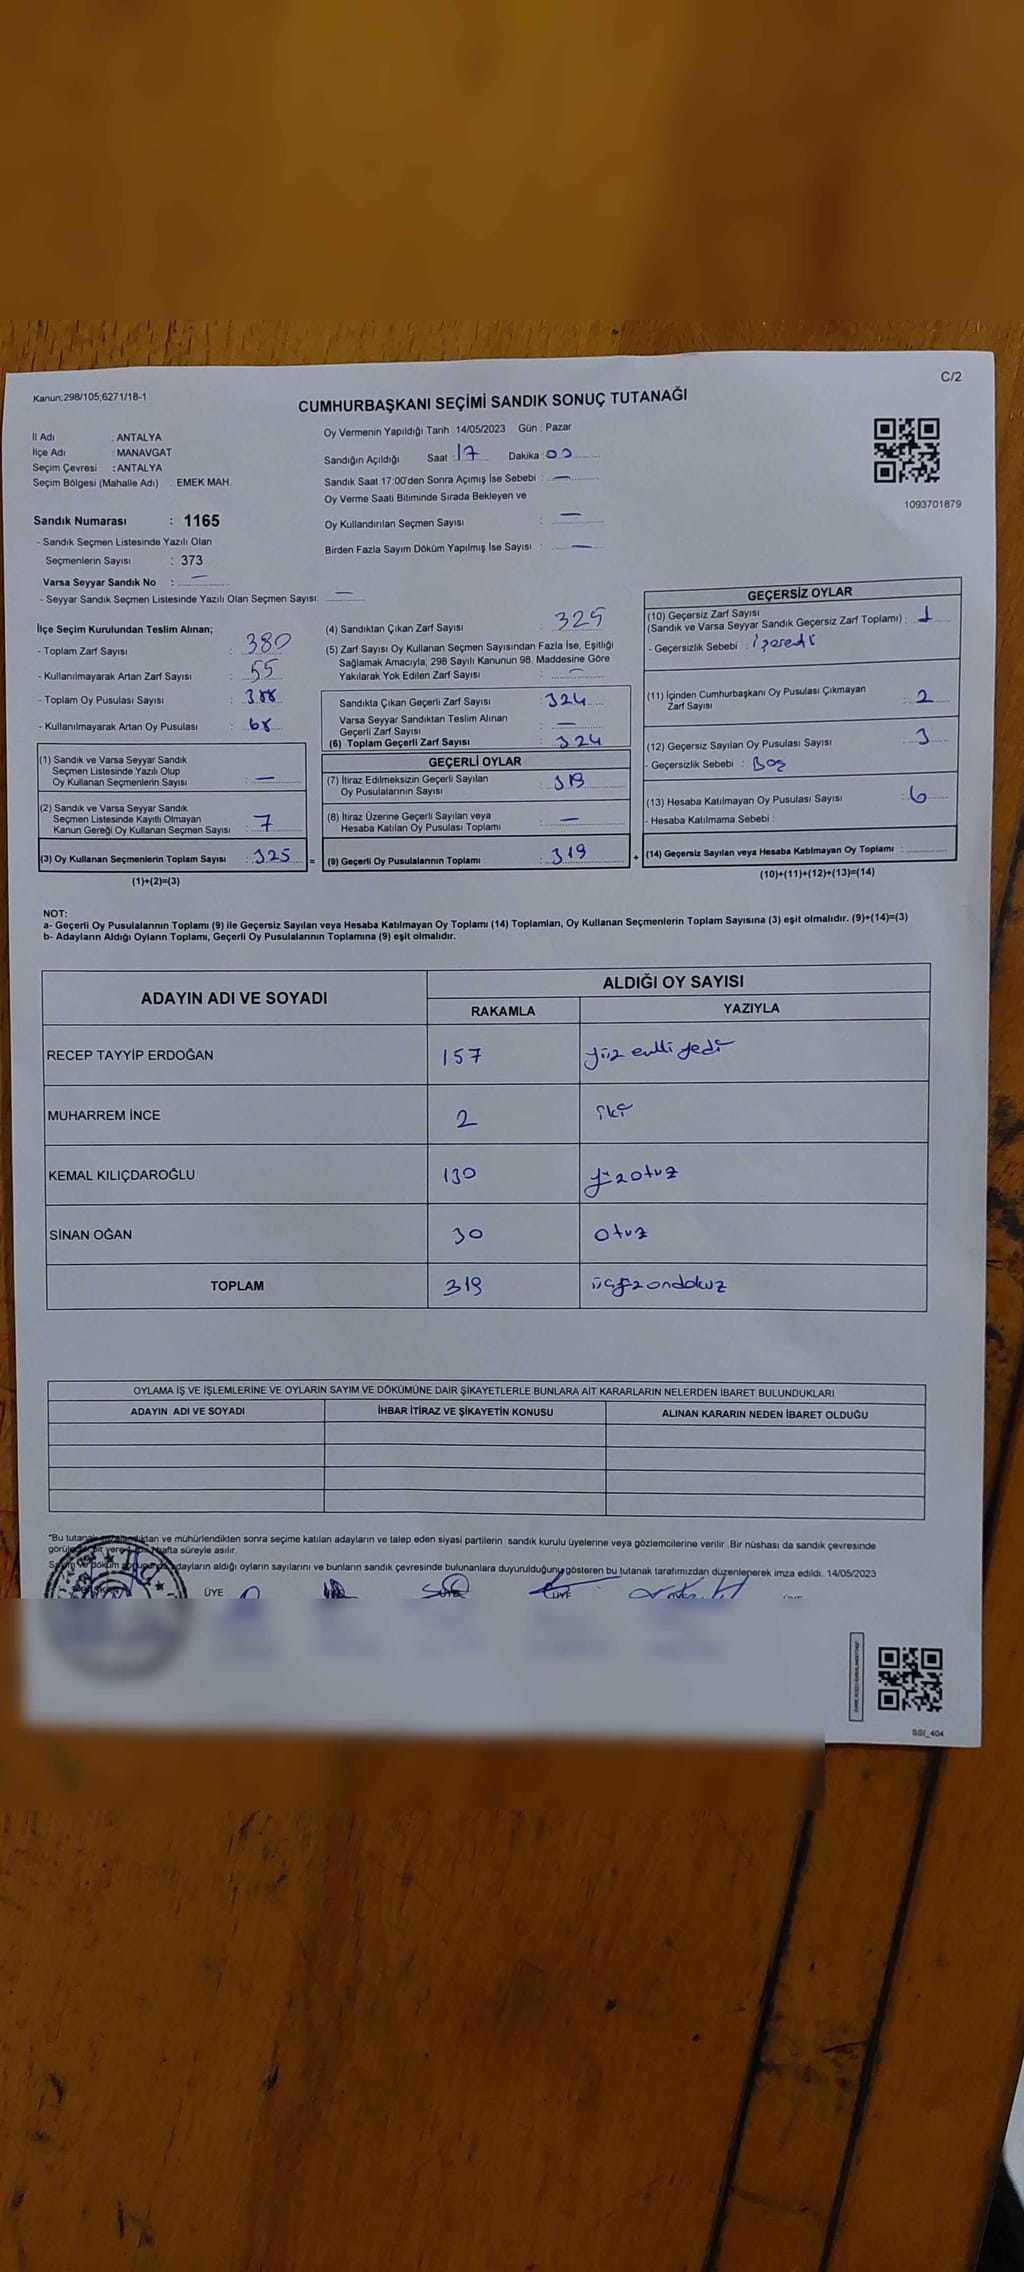 C/2
Kanun;298/105;6271/18-1
CUMHURBAŞKANI SEÇİMİ SANDIK SONUÇ TUTANAĞI
İl Adı : ANTALYA
İlçe Adı : MANAVGAT
Seçim Çevresi : ANTALYA
Seçim Bölgesi (Mahalle Adı) : EMEK MAH.
Oy Vermenin Yapıldığı Tarih :14/05/2023 Gün : Pazar
Sandığın Açıldığı Saat :17 Dakika :
Sandık Saat 17:00'den Sonra Açımış İse Sebebi : —
Oy Verme Saati Bitiminde Sırada Bekleyen ve
Oy Kullandırılan Seçmen Sayısı : —
Birden Fazla Sayım Döküm Yapılmış İse Sayısı : —
1093701879
Sandık Numarası : 1165
- Sandık Seçmen Listesinde Yazılı Olan
Seçmenlerin Sayısı : 373
Varsa Seyyar Sandık No : —
- Seyyar Sandık Seçmen Listesinde Yazılı Olan Seçmen Sayısı: —
İlçe Seçim Kurulundan Teslim Alınan;
- Toplam Zarf Sayısı : 380
- Kullanılmayarak Artan Zarf Sayısı : 55
- Toplam Oy Pusulası Sayısı : 388
- Kullanılmayarak Artan Oy Pusulası : 68
(1) Sandık ve Varsa Seyyar Sandık
Seçmen Listesinde Yazılı Olup
Oy Kullanan Seçmenlerin Sayısı : —
(2) Sandık ve Varsa Seyyar Sandık
Seçmen Listesinde Kayıtlı Olmayan
Kanun Gereği Oy Kullanan Seçmen Sayısı : 7
(3) Oy Kullanan Seçmenlerin Toplam Sayısı : 325 =
(1)+(2)=(3)
(4) Sandıktan Çıkan Zarf Sayısı : 325
(5) Zarf Sayısı Oy Kullanan Seçmen Sayısından Fazla İse, Eşitliği
Sağlamak Amacıyla; 298 Sayılı Kanunun 98. Maddesine Göre
Yakılarak Yok Edilen Zarf Sayısı : —
Sandıkta Çıkan Geçerli Zarf Sayısı : 324
Varsa Seyyar Sandıktan Teslim Alınan
Geçerli Zarf Sayısı : —
(6) Toplam Geçerli Zarf Sayısı : 324
GEÇERLİ OYLAR
(7) İtiraz Edilmeksizin Geçerli Sayılan
Oy Pusulalarının Sayısı : 319
(8) İtiraz Üzerine Geçerli Sayılan veya
Hesaba Katılan Oy Pusulası Toplamı : —
(9) Geçerli Oy Pusulalarının Toplamı : 319 +
GEÇERSİZ OYLAR
(10) Geçersiz Zarf Sayısı
(Sandık ve Varsa Seyyar Sandık Geçersiz Zarf Toplamı) : 1
- Geçersizlik Sebebi :
(11) İçinden Cumhurbaşkanı Oy Pusulası Çıkmayan
Zarf Sayısı : 2
(12) Geçersiz Sayılan Oy Pusulası Sayısı : 3
- Geçersizlik Sebebi : Boş
(13) Hesaba Katılmayan Oy Pusulası Sayısı : 6
- Hesaba Katılmama Sebebi :
(14) Geçersiz Sayılan veya Hesaba Katılmayan Oy Toplamı :
(10)+(11)+(12)+(13)=(14)
NOT:
a- Geçerli Oy Pusulalarının Toplamı (9) ile Geçersiz Sayılan veya Hesaba Katılmayan Oy Toplamı (14) Toplamları, Oy Kullanan Seçmenlerin Toplam Sayısına (3) eşit olmalıdır. (9)+(14)=(3)
b- Adayların Aldığı Oyların Toplamı, Geçerli Oy Pusulalarının Toplamına (9) eşit olmalıdır.
ADAYIN ADI VE SOYADI ALDIĞI OY SAYISI
RAKAMLA YAZIYLA
RECEP TAYYİP ERDOĞAN 157 yüz elli yedi
MUHARREM İNCE 2 iki
KEMAL KILIÇDAROĞLU 130 yüzotuz
SİNAN OĞAN 30 otuz
TOPLAM 319 üçyüzondokuz
OYLAMA İŞ VE İŞLEMLERİNE VE OYLARIN SAYIM VE DÖKÜMÜNE DAİR ŞİKAYETLERLE BUNLARA AİT KARARLARIN NELERDEN İBARET BULUNDUKLARI
ADAYIN ADI VE SOYADI İHBAR İTİRAZ VE ŞİKAYETİN KONUSU ALINAN KARARIN NEDEN İBARET OLDUĞU
*Bu ve mühürlendikten sonra seçime katılan adayların ve talep eden siyasi partilerin sandık kurulu üyelerine veya gözlemcilerine verilir. Bir nüshası da sandık çevresinde
hafta süreyle asılır.
adayların aldığı oyların sayılarını ve bunların sandık çevresinde bulunanlara duyurulduğunu gösteren bu tutanak tarafımızdan düzenlenerek imza edildi. 14/05/2023
ÜYE ÜYE
SSI_404